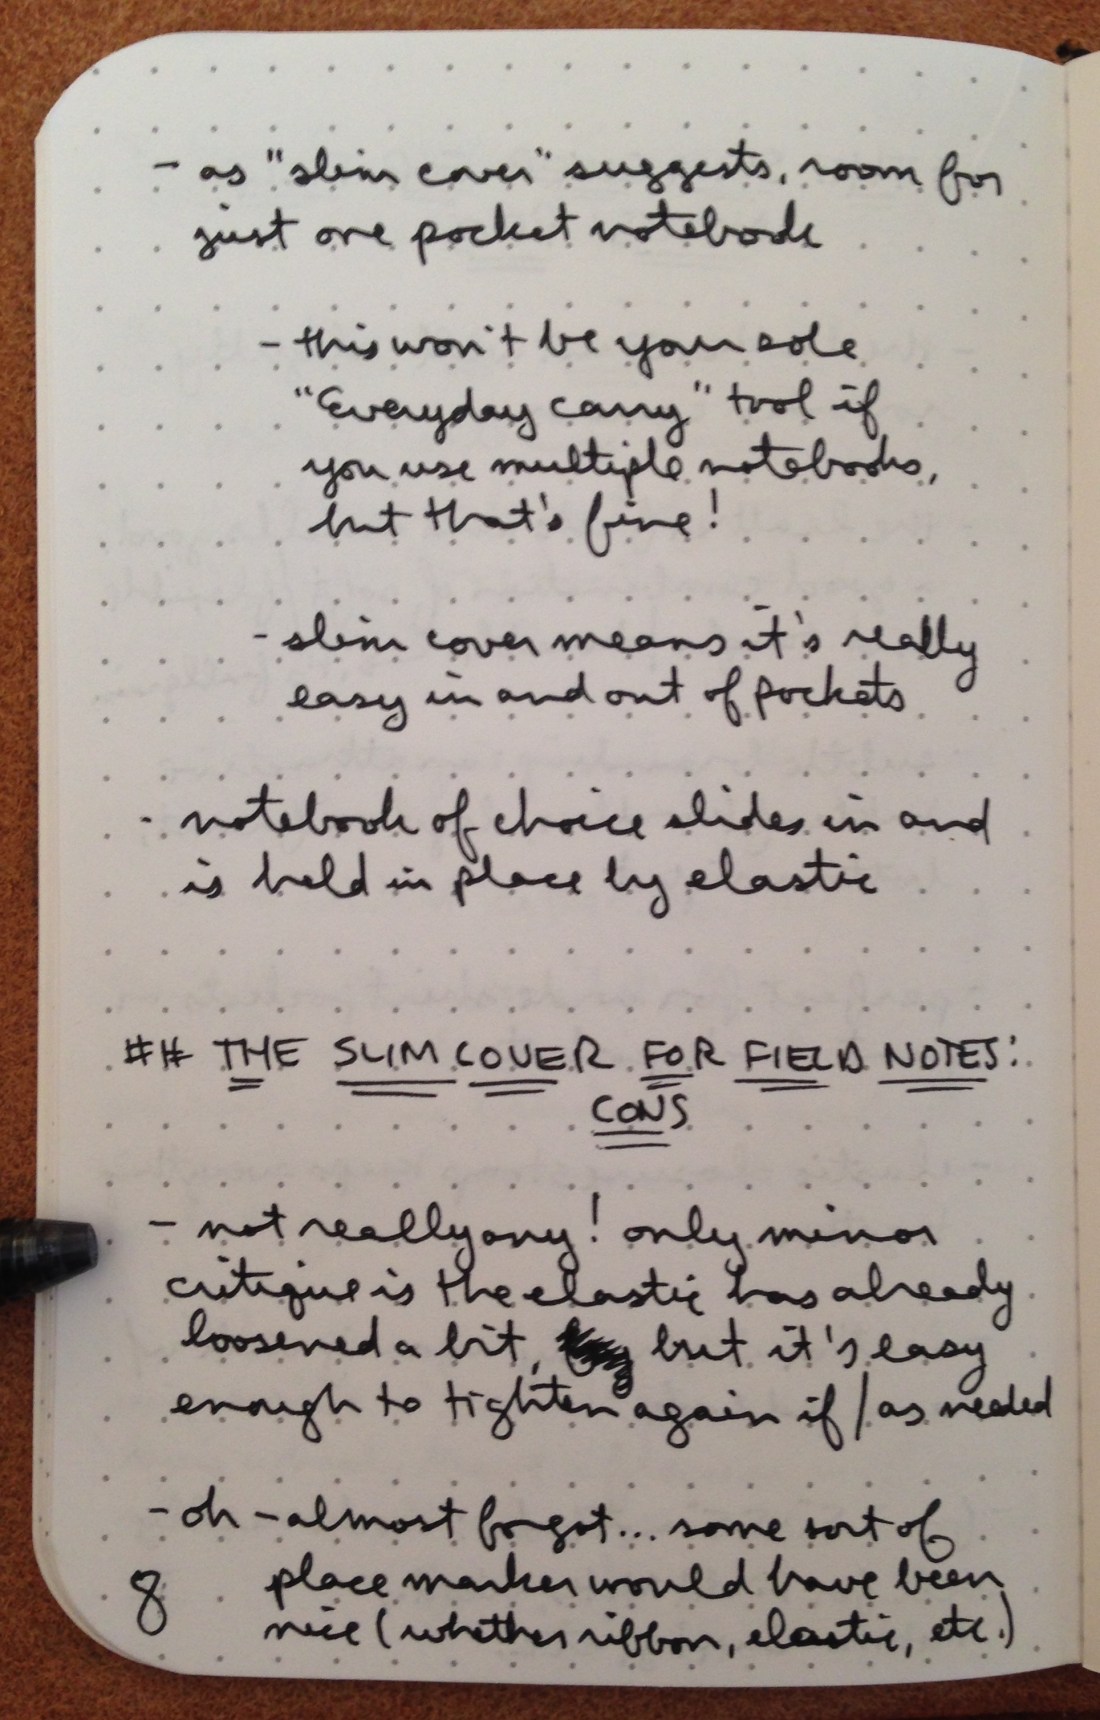 - as "slim cover" suggests, room for
just one pocket notebook
- this won't be your sole
"Everyday carry" tool if
you use multiple notebooks,
but that's fine!
- slim cover means it's really
easy in and out of pockets
- notebook of choice slides in and
is held in place by elastic
## THE SLIM COVER FOR FIELD NOTES:
CONS
- not really any! only minor
critique is the elastic has already
loosened a bit, but it's easy
enough to tighten again if/as needed
- oh - almost forgot... some sort of
place marker would have been
nice (whether ribbon, elastic, etc.)
8